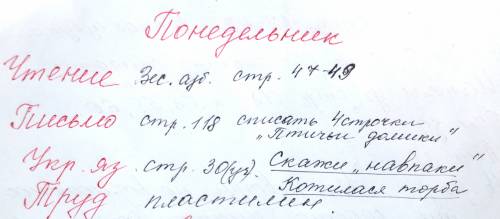 Понедельник
Чтение Зс. азб. стр. 47-49
Письмо стр. 118 списать 4 строчки
„Птичьи домики"
Укр. яз. стр. 30(уз). Скажи „навпаки"
Котилася торба
Труд пластилин.